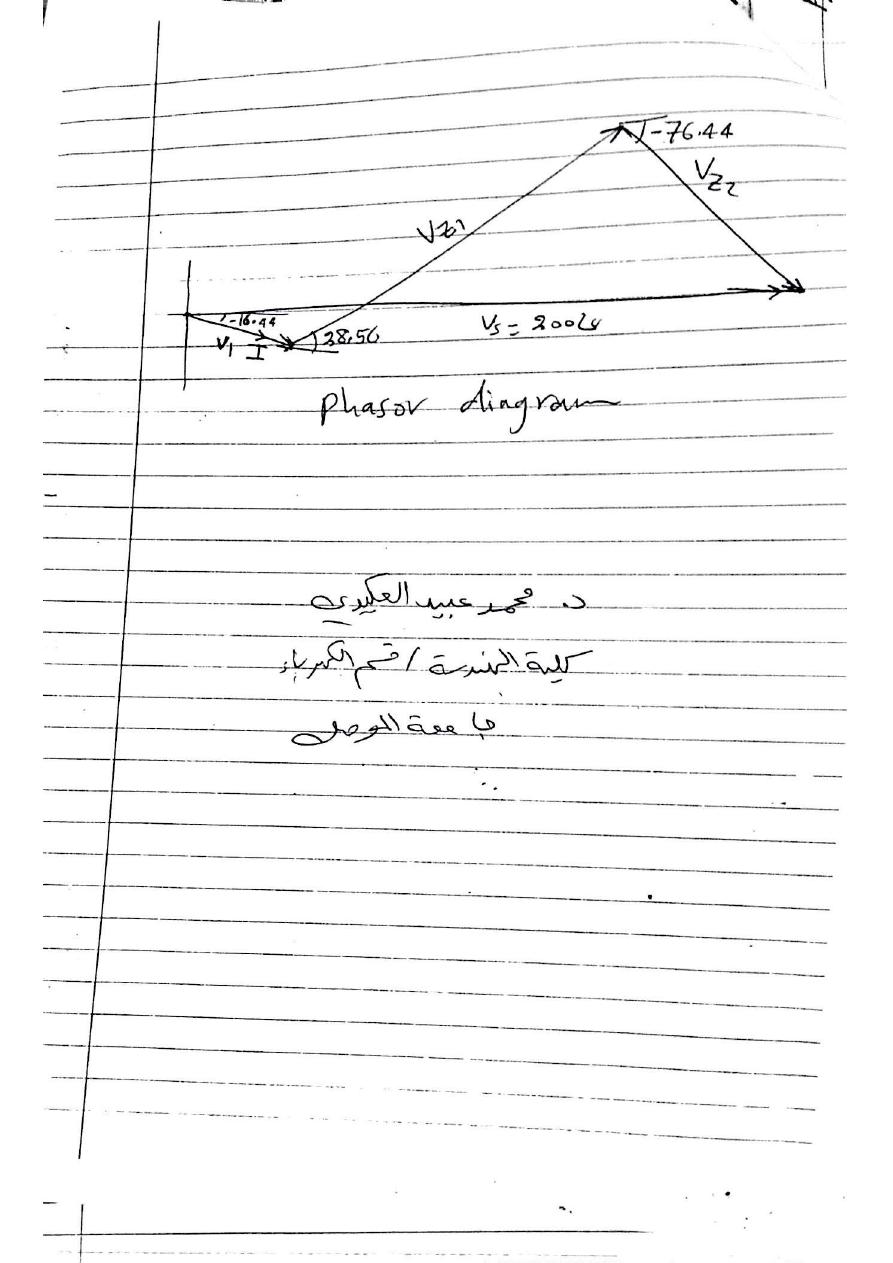 -76.44
VZ2
VZ1
-16.44
V1 I
28.56
Vs = 200∠0
Phasor diagram
د. محمد عبيد العكيدي
كلية الهندسة / قسم الكهرباء
جامعة الموصل